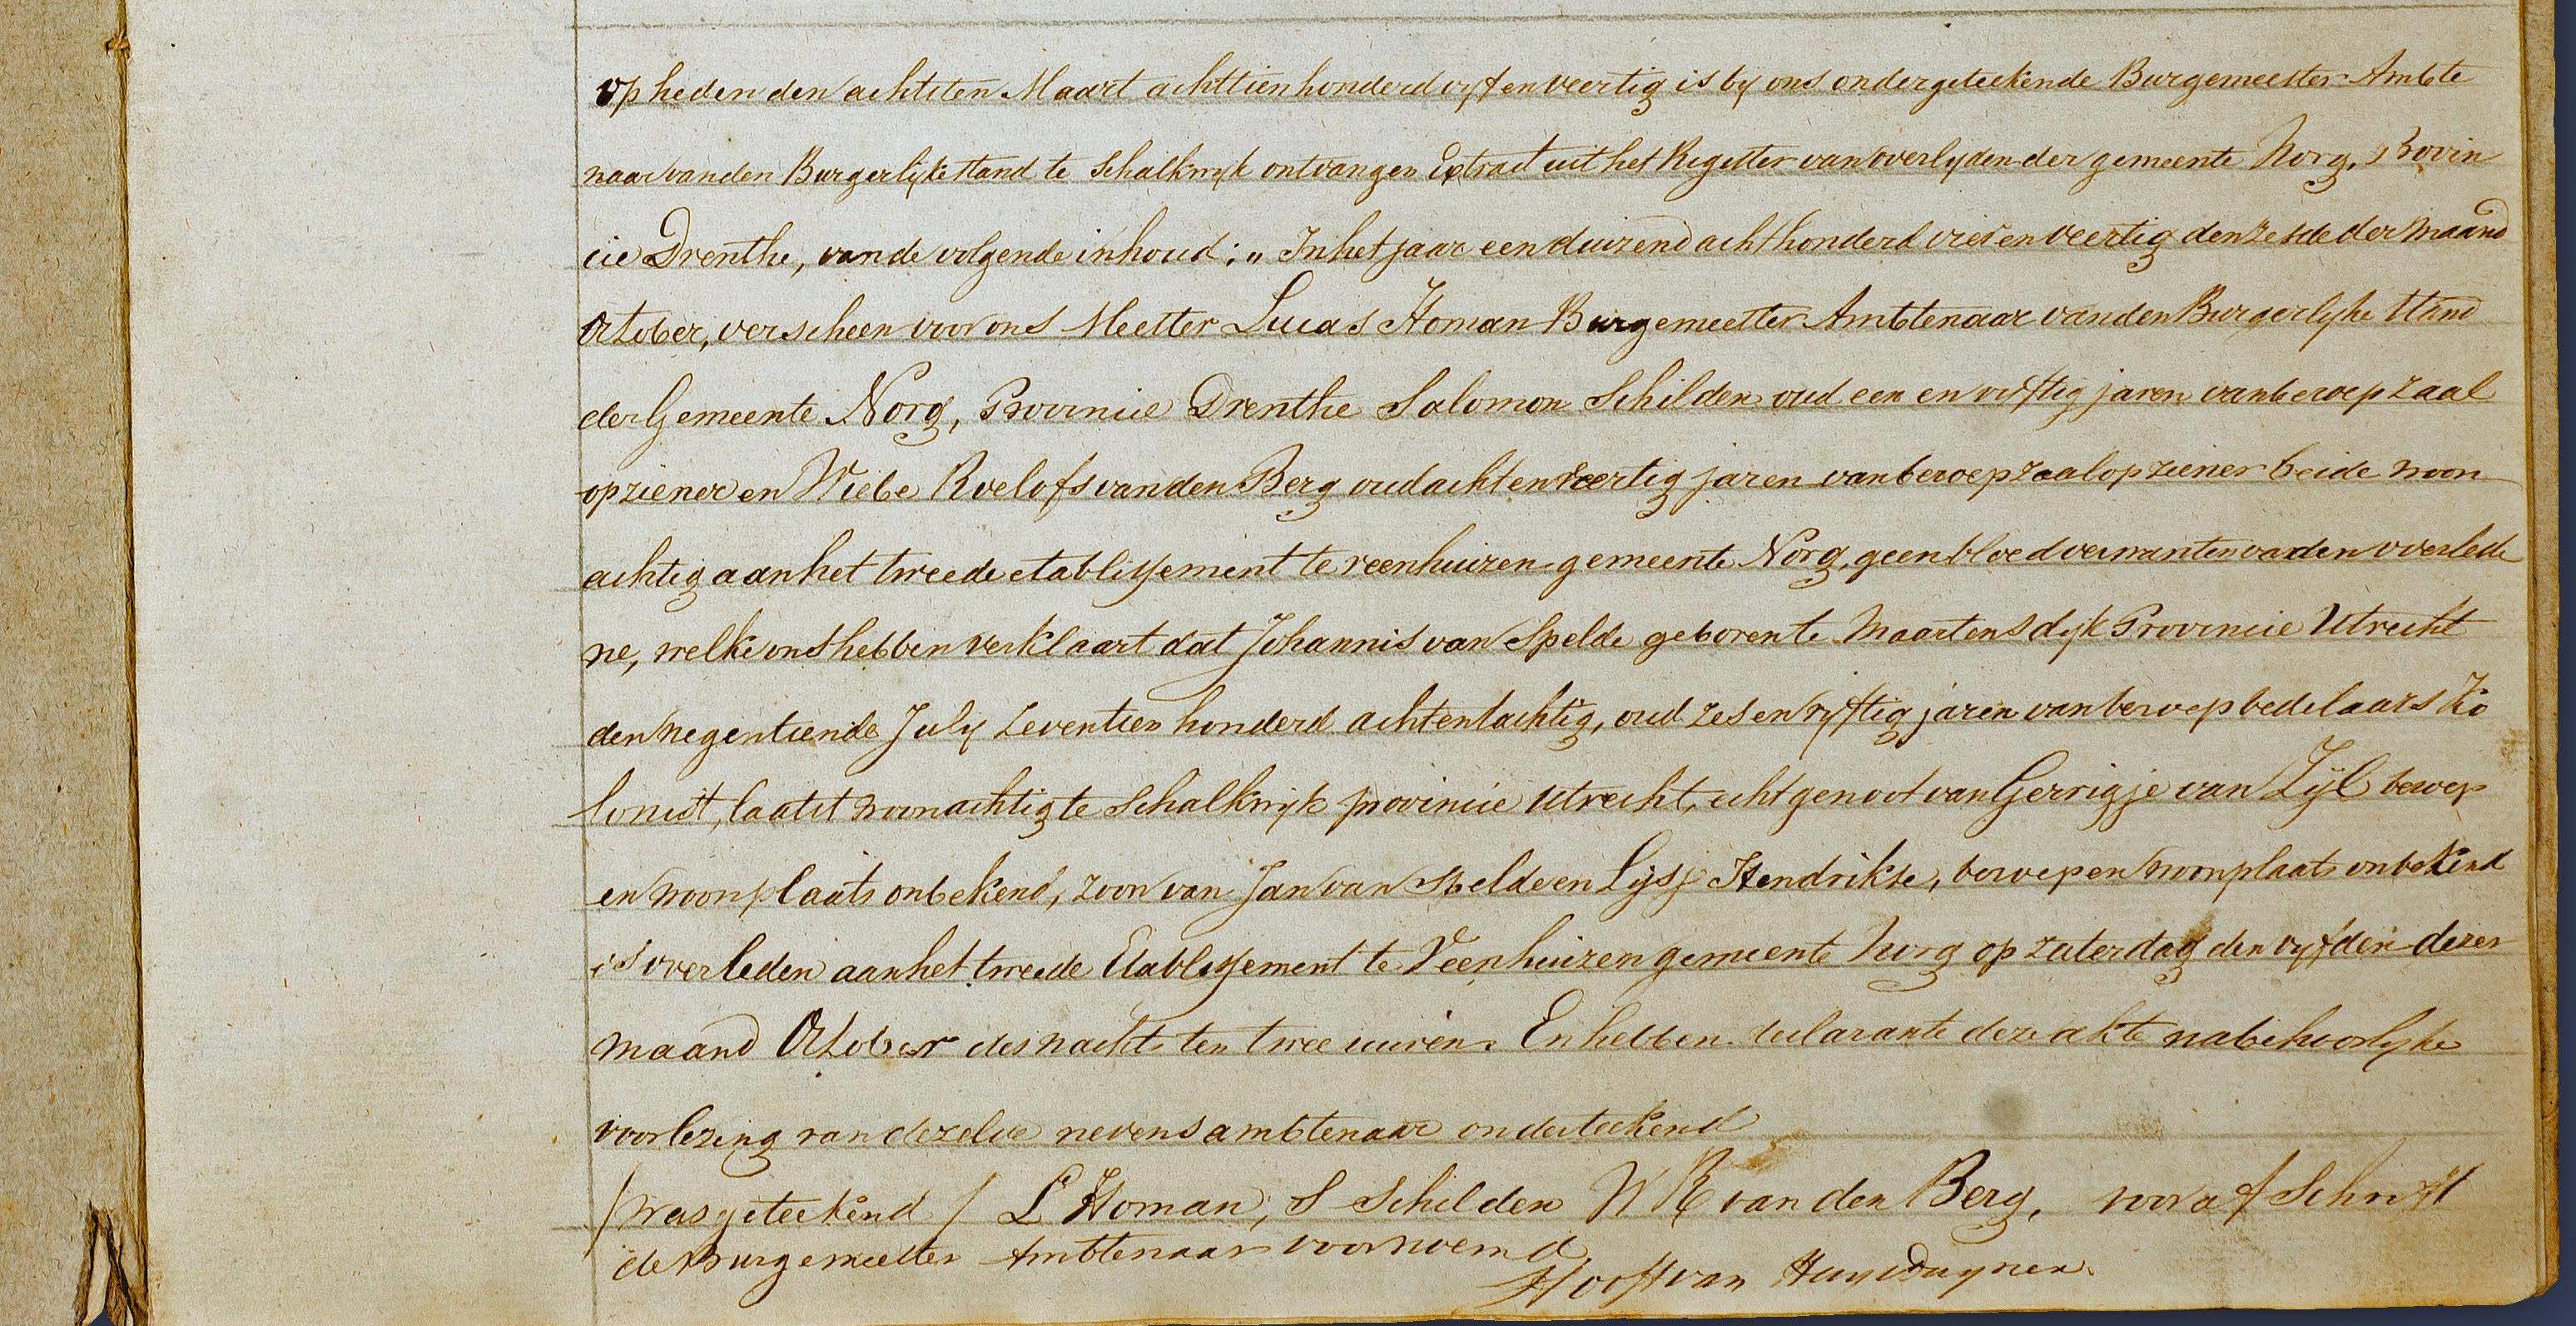 Op heden den achtsten Maart achttienhonderd vyf en veertig is by ons ondergeteekende Burgemeester Ambte
naar van den Burgerlyke Stand te Schalkwyk ontvangen Extract uit het Register van overlyden der gemeente Norg, Provin
cie Drenthe, van de volgende inhoud: „ In het jaar een duizend acht honderd vier en veertig den zesde der maand
October, verscheen voor ons Meester Lucas Homan Burgemeester Ambtenaar van den Burgerlyke Stand
der Gemeente Norg, Provincie Drenthe Salomon Schilden oud een en vyftig jaren van beroep zaal
opziener en Wiebe Roelofs van den Berg oud acht en veertig jaren van beroep zaalopziener beide woon
achtig aan het tweede etablissement te veenhuizen gemeente Norg, geen bloedverwanten van den overlede
ne, welke ons hebben verklaart dat Johannis van Spelde geboren te Maartensdyk Provincie Utrecht
den negentiende July zeventien honderd achtentachtig, oud zes en vyftig jaren van beroep bedelaars Ko
lonist, laatst woonachtig te Schalkwyk provincie Utrecht, echtgenoot van Gerrigje van Zÿl beroep
en woonplaats onbekend, zoon van Jan van Spelde en Lijsje Hendrikse, beroep en woonplaats onbekend
is overleden aan het tweede Etablissement te Veenhuizen gemeente Norg op zaterdag den vyfden dezer
maand October des nachts ten twee uuren. En hebben declarante deze akte na behoorlyke
voorlezing van dezelve nevens ambtenaar onderteekend
/was geteekend / L Homan, S Schilden W R van den Berg, voor afschrift
de Burgemeester Ambtenaar voornoemd
Hooft van Huysduynen.